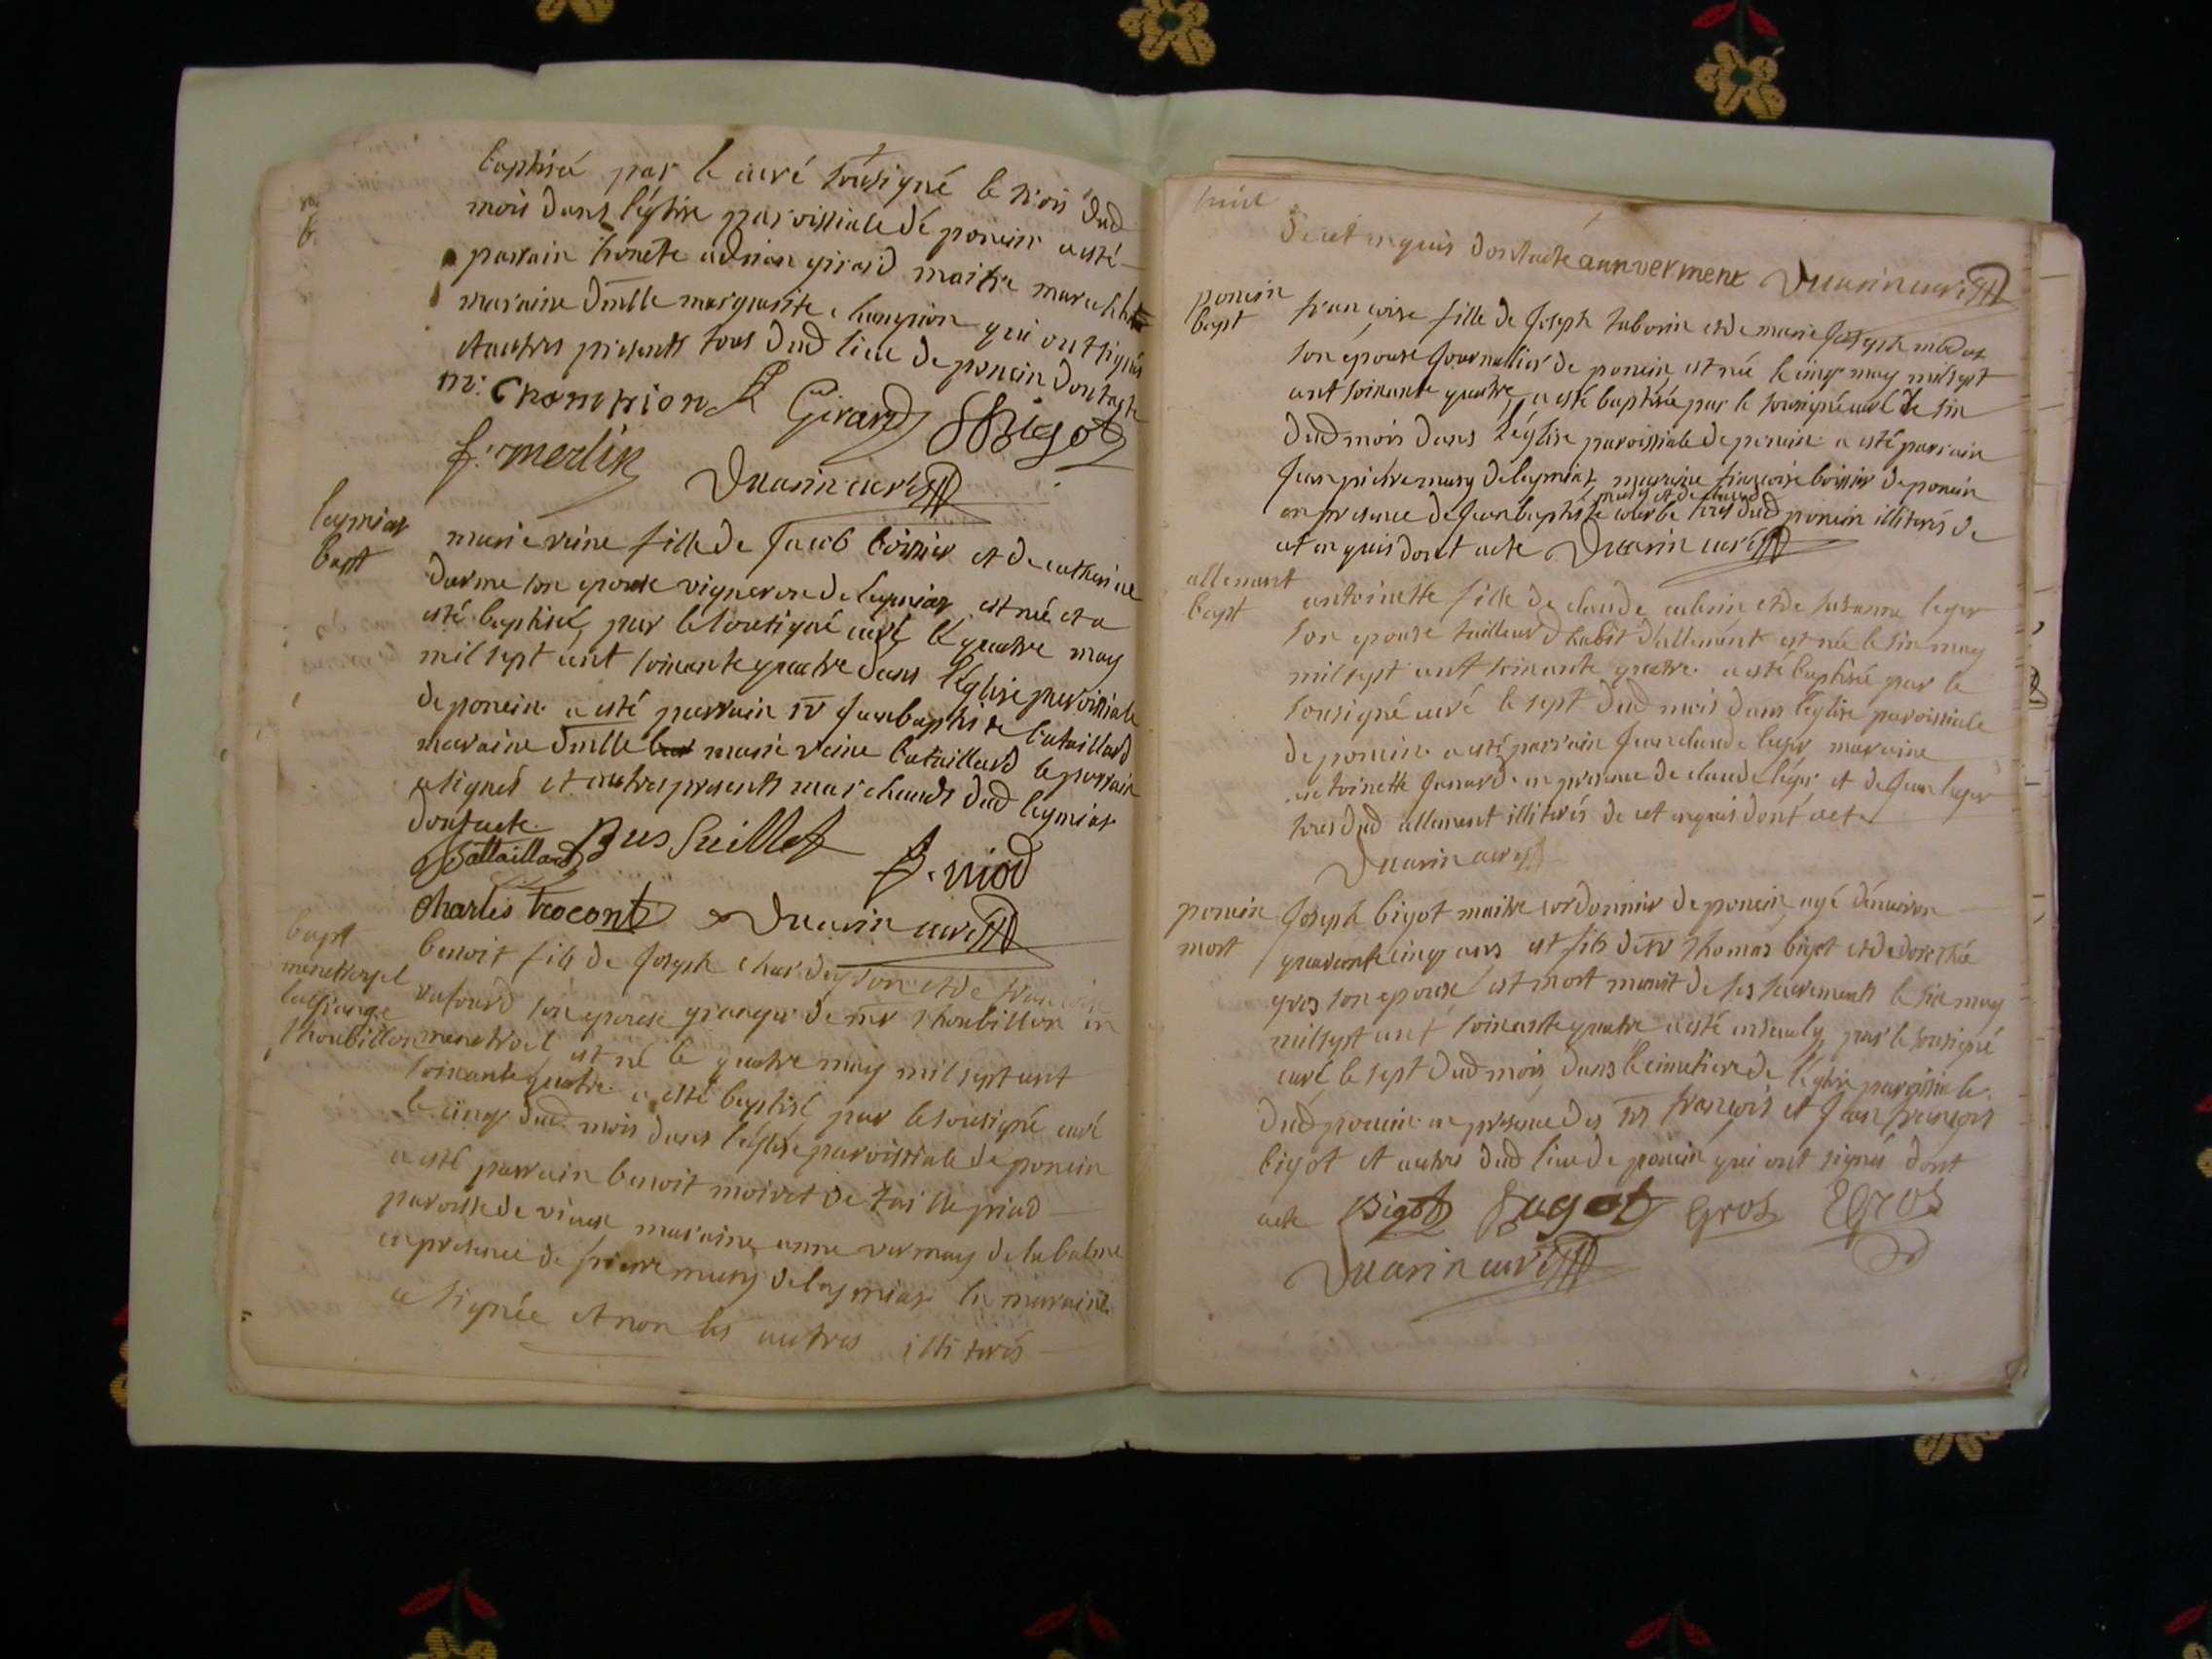 baptisée par le curé sousigné le trois dud
mois dans l'église paroissiale de poncin a esté
parrain honete adrian girard maitre marechal
maraine dmlle marguerite champion qui ont signés
et autres presents tous dud lieu de poncin dont acte
m. Champion Girard Bigot
f. merlin
Duarin curé
leymiat
bapt
marie reine fille de Jacob boissier et de catherine
darme son epouse vigneron de leymiat est née et a
esté baptisée par le sousigné curé le quatre may
mil sept cent soixante quatre dans l'église paroissiale
de poncin. a esté parrain sr Jean baptiste bataillard
maraine dmlle marie reine bataillard le parrain
a signés et autres presents marchands dud leymiat
dont acte.
Battaillard Bussuillet J. niod
Charles trocont Duarin curé
bapt
menetruel
la grange
thoubillon
benoit fils de Joseph chardeyron et de francoise
son epouse granger de mr thoubillon en
menetruel est né le quatre may mil sept cent
soixante quatre. a esté baptisé par le sousigné curé
le cinq dud. mois dans l'église paroissiale de poncin
a esté parrain benoit moiret de
paroisse de maraine anne vermay de la balme
en presence de pierre mury de leymiat la maraine
a signée et non les autres illiterés
de cet enquis dont acte anne verment Duarin curé
poncin
bapt
francoise fille de Joseph taborin et de marie Joseph
son epouse Journallier de poncin est née le cinq may mil sept
cent soixante quatre, a esté baptisée par le sousigné curé le six
dud mois dans l'église paroissiale de poncin a esté parrain
Jean pierre mury de leymiat, maraine francoise boissier de poncin
en presence de Jean baptiste tous dud poncin illiterés de
cet enquis dont acte Duarin curé
allement
bapt
antoinette fille de claude et de susanne leger
son epouse tailleur d'habit d'allement est née le six may
mil sept cent soixante quatre. a esté baptisée par le
sousigné curé le sept dud mois dans l'église paroissiale
de poncin. a esté parrain Jean claude leger maraine
antoinette en presence de claude léger et de Jean leger
tous dud allement illiterés de cet enquis dont acte
Duarin curé
poncin
mort
Joseph bigot maitre cordonnier de poncin, agé d'environ
quarante cinq ans est fils de sr thomas bigot et de dorothée
gros son epouse est mort munit de ses sacrements le six may
mil sept cent soixante quatre a esté ensevely par le sousigné
curé le sept dud mois dans le cimetiere de l'église paroissiale
dud poncin en presence des srs francois et Jean francois
bigot et autres dud lieu de poncin qui ont signés dont
acte Bigot Bigot Gros Gros
Duarin curé